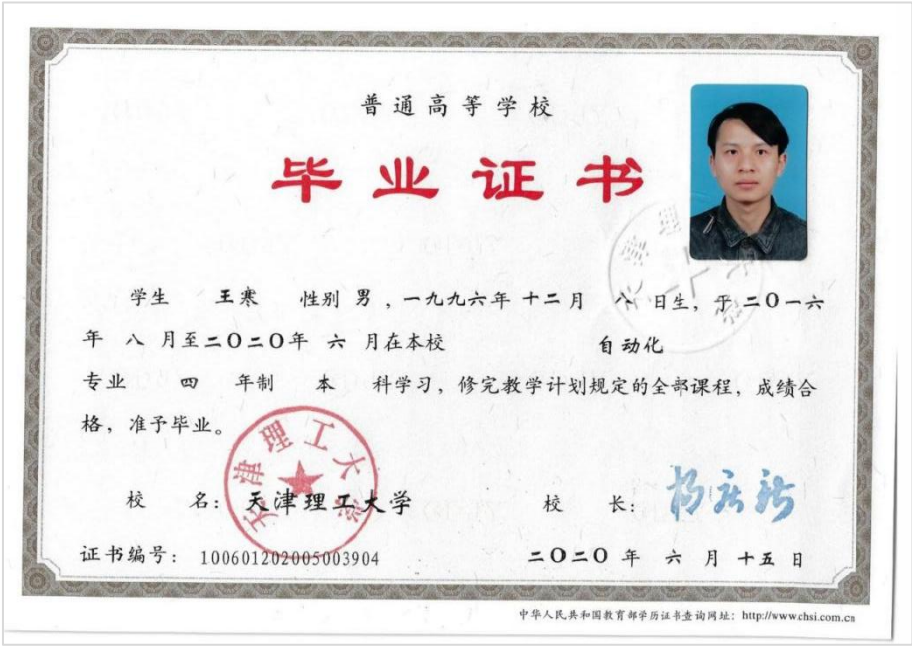 普通高等学校
毕业证书
学生 王寒 性别 男 ，一九九六年 十二月 八 日生，于 二〇一六
年 八 月至二〇二〇年 六 月在本校 自动化
专业 四 年制 本 科学习，修完教学计划规定的全部课程，成绩合
格，准予毕业。
天津理工大学
校 名：天津理工大学 校 长：
证书编号：100601202005003904 二〇二〇 年 六 月 十五 日
中华人民共和国教育部学历证书查询网址：http://www.chsi.com.cn